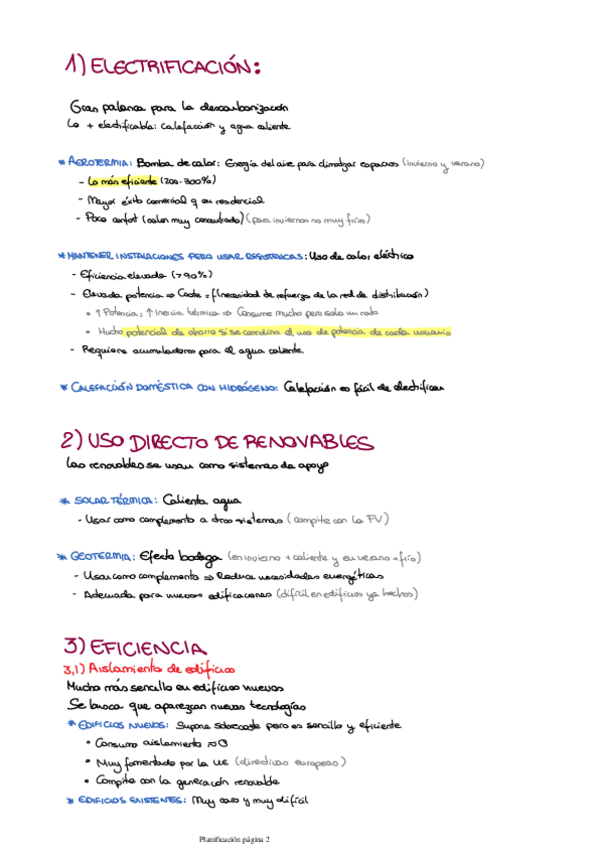 1) ELECTRIFICACIÓN:
Gran palanca para la descarbonización
↳ + electrificable: calefacción y agua caliente
* AEROTERMIA: Bomba de calor: Energía del aire para climatizar espacios (invierno y verano)
- La más eficiente (200-300%)
- Mayor éxito comercial q en residencial
- Poco confort (calor muy concentrado) (para inviernos no muy fríos)
* MANTENER INSTALACIONES PERO USAR RESISTENCIAS: Uso de calor eléctrico
- Eficiencia elevada (>90%)
- Elevada potencia ⇒ Coste = f(necesidad de refuerzo de la red de distribución)
• ↑ Potencia: ↑ Inercia térmica ⇒ Consume mucho pero solo un rato
• Mucho potencial de ahorro si se coordina el uso de potencia de cada usuario
- Requiere acumuladores para el agua caliente.
* CALEFACCIÓN DOMÉSTICA CON HIDRÓGENO: Calefacción es fácil de electrificar
2) USO DIRECTO DE RENOVABLES
Las renovables se usan como sistemas de apoyo
* SOLAR TÉRMICA: Calienta agua
- Usar como complemento a otros sistemas (compite con la FV)
* GEOTERMIA: Efecto bodega (en invierno + caliente y en verano + frío)
- Usar como complemento ⇒ Reduce necesidades energéticas
- Adecuada para nuevas edificaciones (difícil en edificios ya hechos)
3) EFICIENCIA
3,1) Aislamiento de edificios
Mucho más sencillo en edificios nuevos
Se busca que aparezcan nuevas tecnologías
* EDIFICIOS NUEVOS: Supone sobrecoste pero es sencillo y eficiente
• Consumo aislamiento ≈ 0
• Muy fomentado por la UE (directivas europeas)
• Compite con la generación renovable
* EDIFICIOS EXISTENTES: Muy caro y muy difícil
Planificación página 2